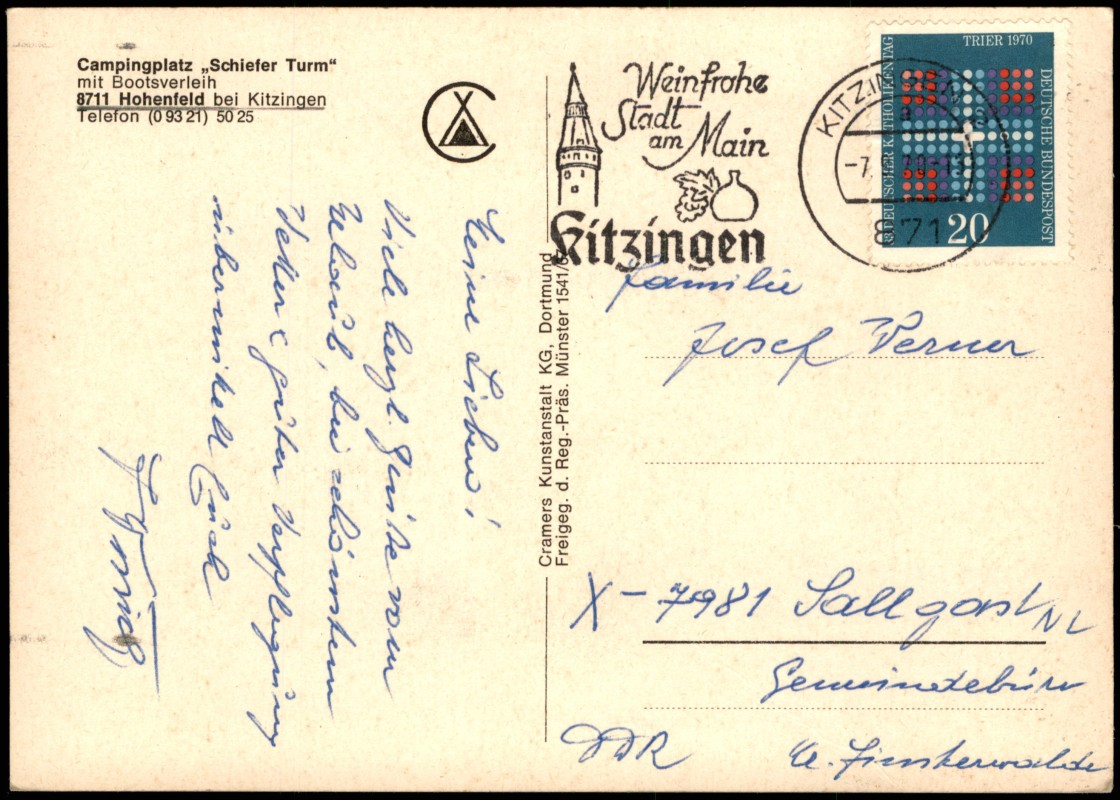 Campingplatz „Schiefer Turm“
mit Bootsverleih
8711 Hohenfeld bei Kitzingen
Telefon (0 93 21) 50 25
Meine Lieben!
Viele herzl. Grüße vom
Urlaub, bei schönstem
Wetter & guter Verpflegung
übermittelt Euch
Cramers Kunstanstalt KG, Dortmund
Freigeg. d. Reg.-Präs. Münster 1541/67
Weinfrohe
Stadt
am Main
Kitzingen
KITZINGEN
871
TRIER 1970
DEUTSCHER KATHOLIKENTAG
DEUTSCHE BUNDESPOST
20
Familie
Josef Perner
X - 7981 Sallgast NL
Gemeindebüro
DDR
Kr. Finsterwalde